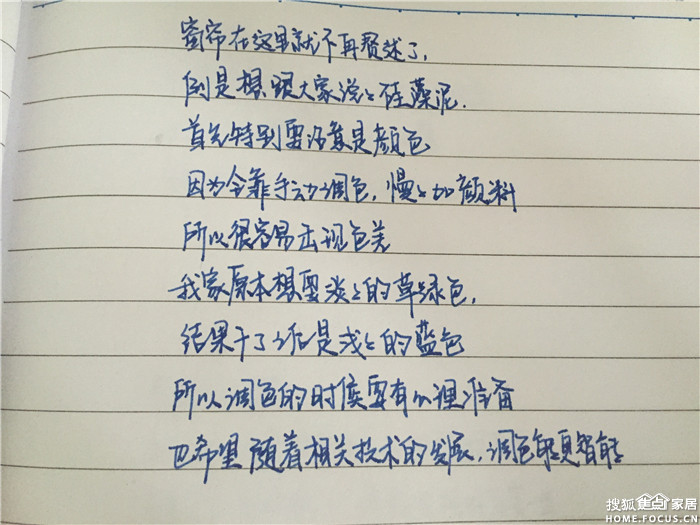 窗帘在这里就不再赘述了,
倒是想跟大家说说硅藻泥.
首先特别要注意是颜色
因为全靠手动调色,慢慢加颜料
所以很容易出现色差
我家原本想要淡淡的草绿色,
结果干了以后是浅浅的蓝色
所以调色的时候要有心理准备
也希望随着相关技术的发展,调色能更智能
搜狐焦点家居
HOME.FOCUS.CN